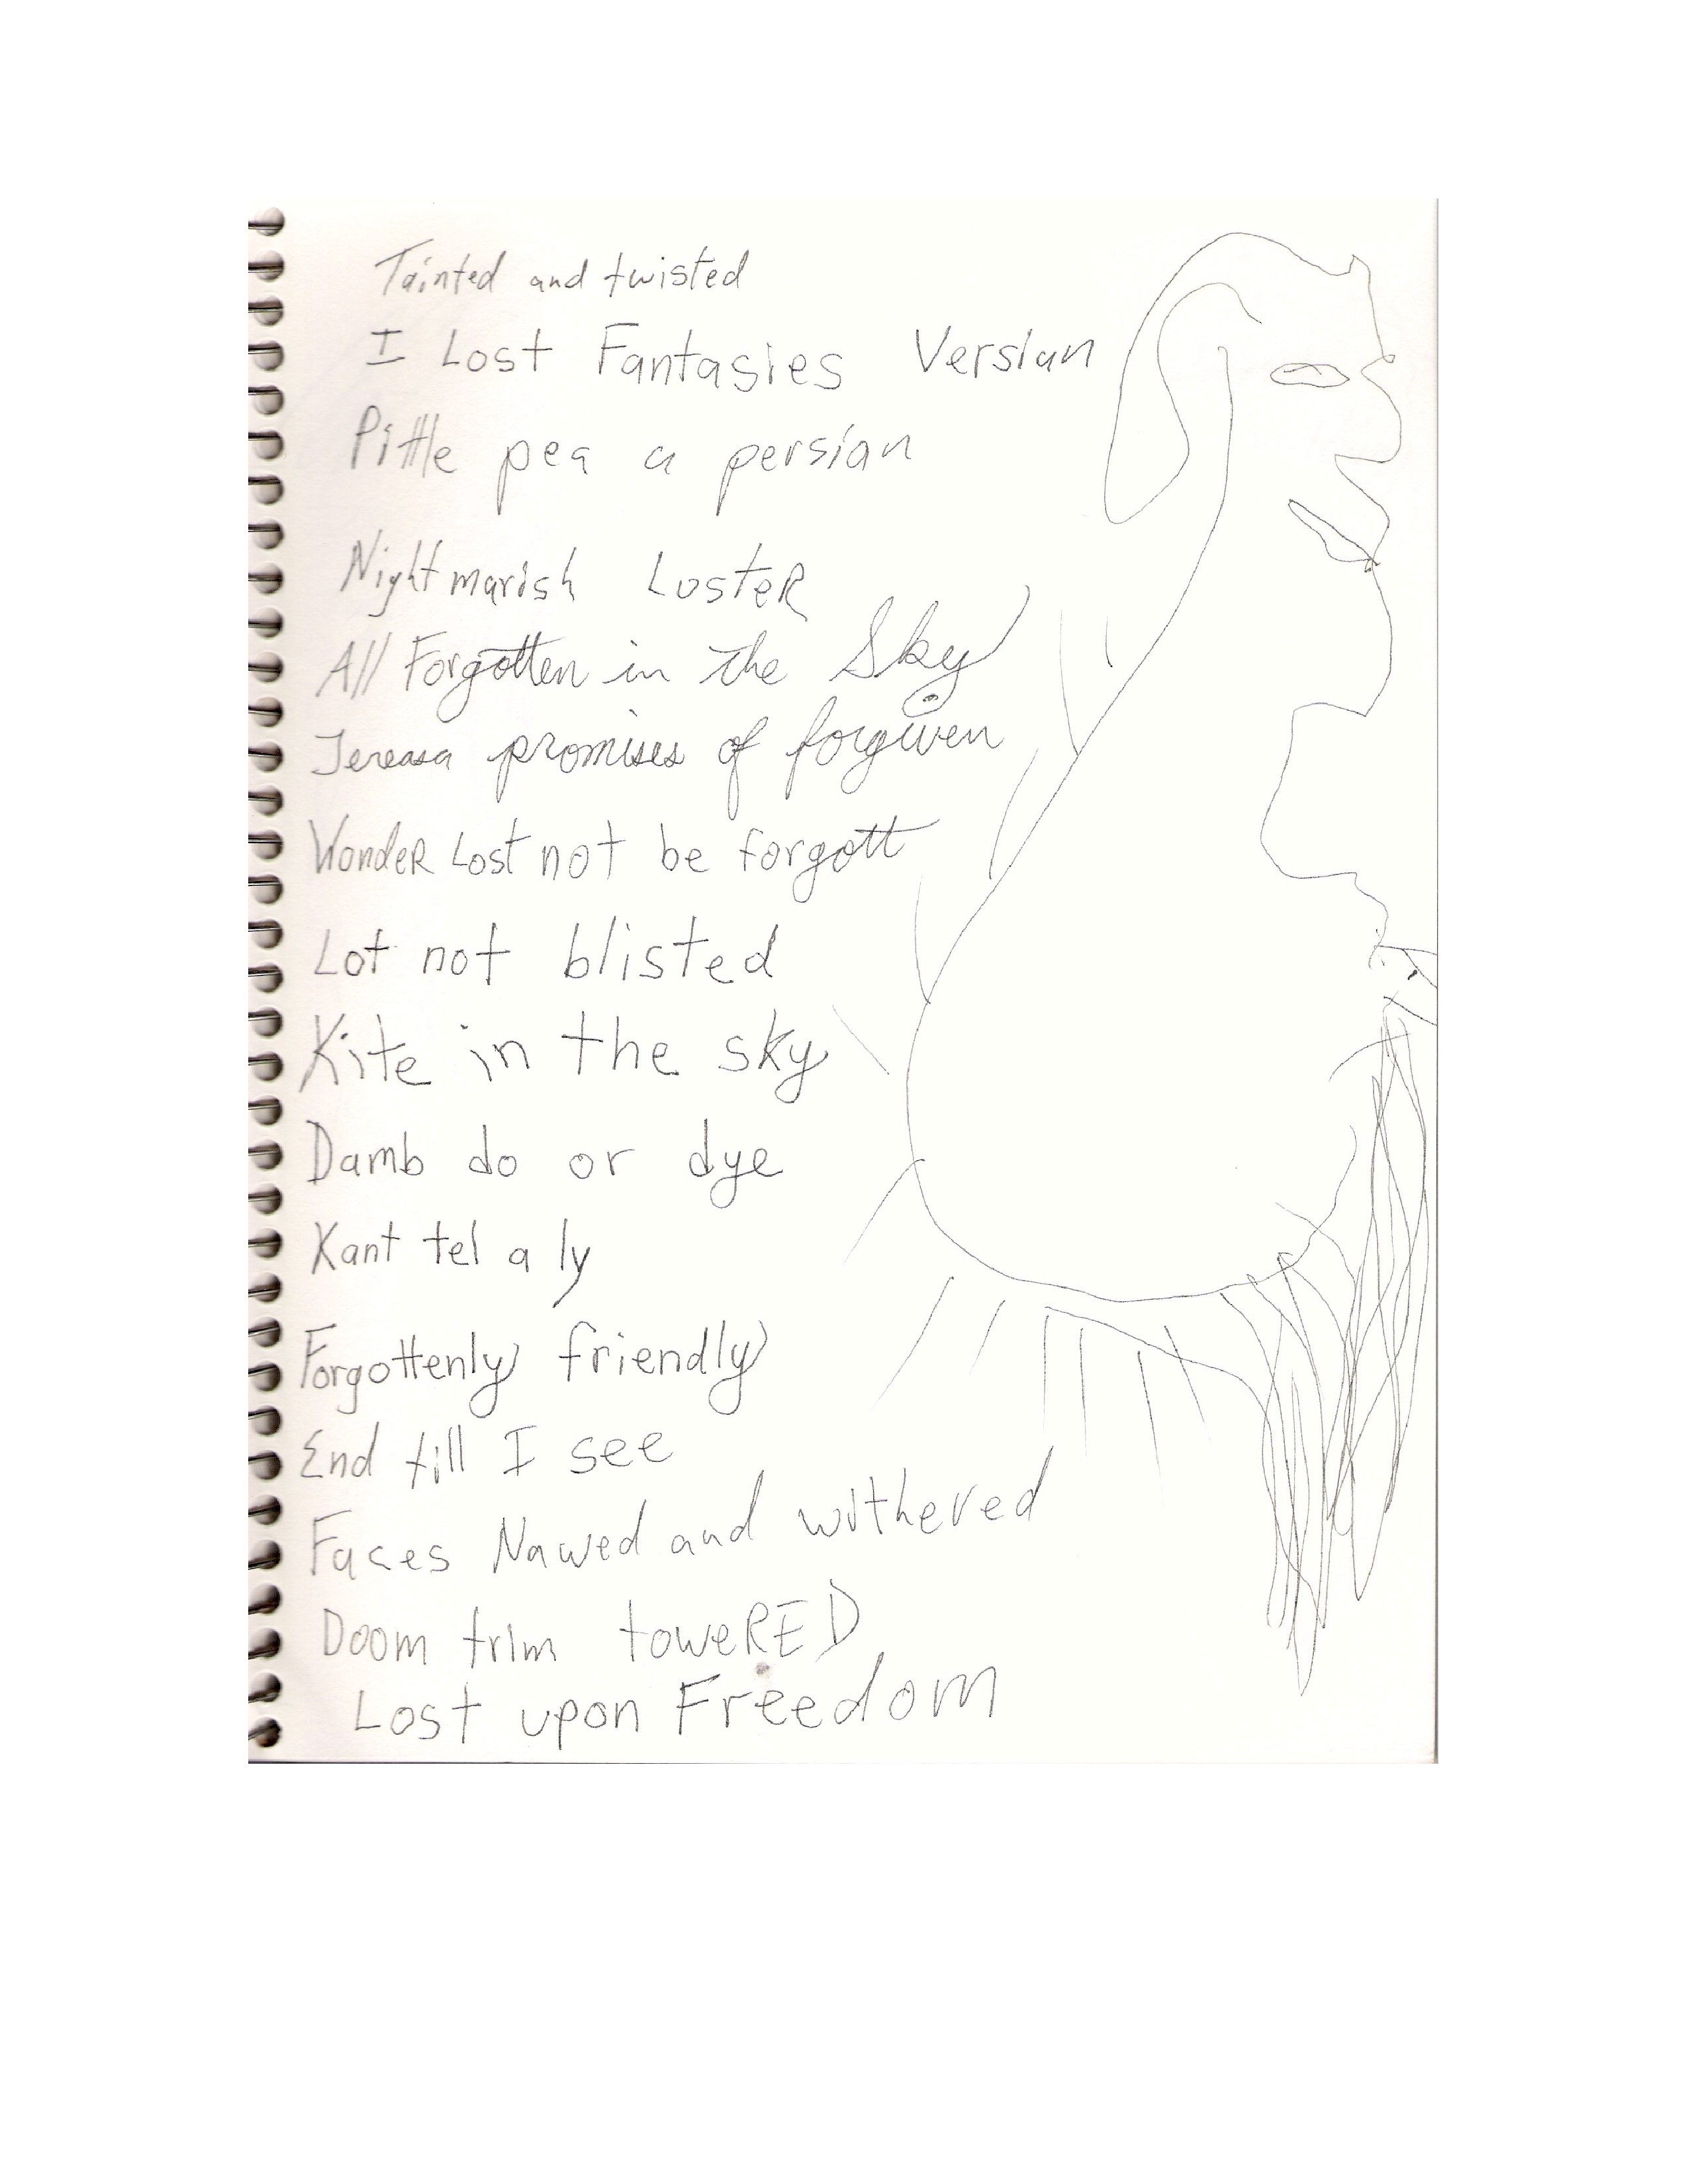 Tainted and twisted
I Lost Fantasies Version
Pittle pea a persian
Nightmarish LusteR
All Forgotten in the Sky
Tereasa promises of forgiven
WondeR Lost not be forgott
Lot not blisted
Kite in the sky
Damb do or dye
Kant tel a ly
Forgottenly friendly
End till I see
Faces Nawed and withered
Doom trim toweRED
Lost upon Freedom